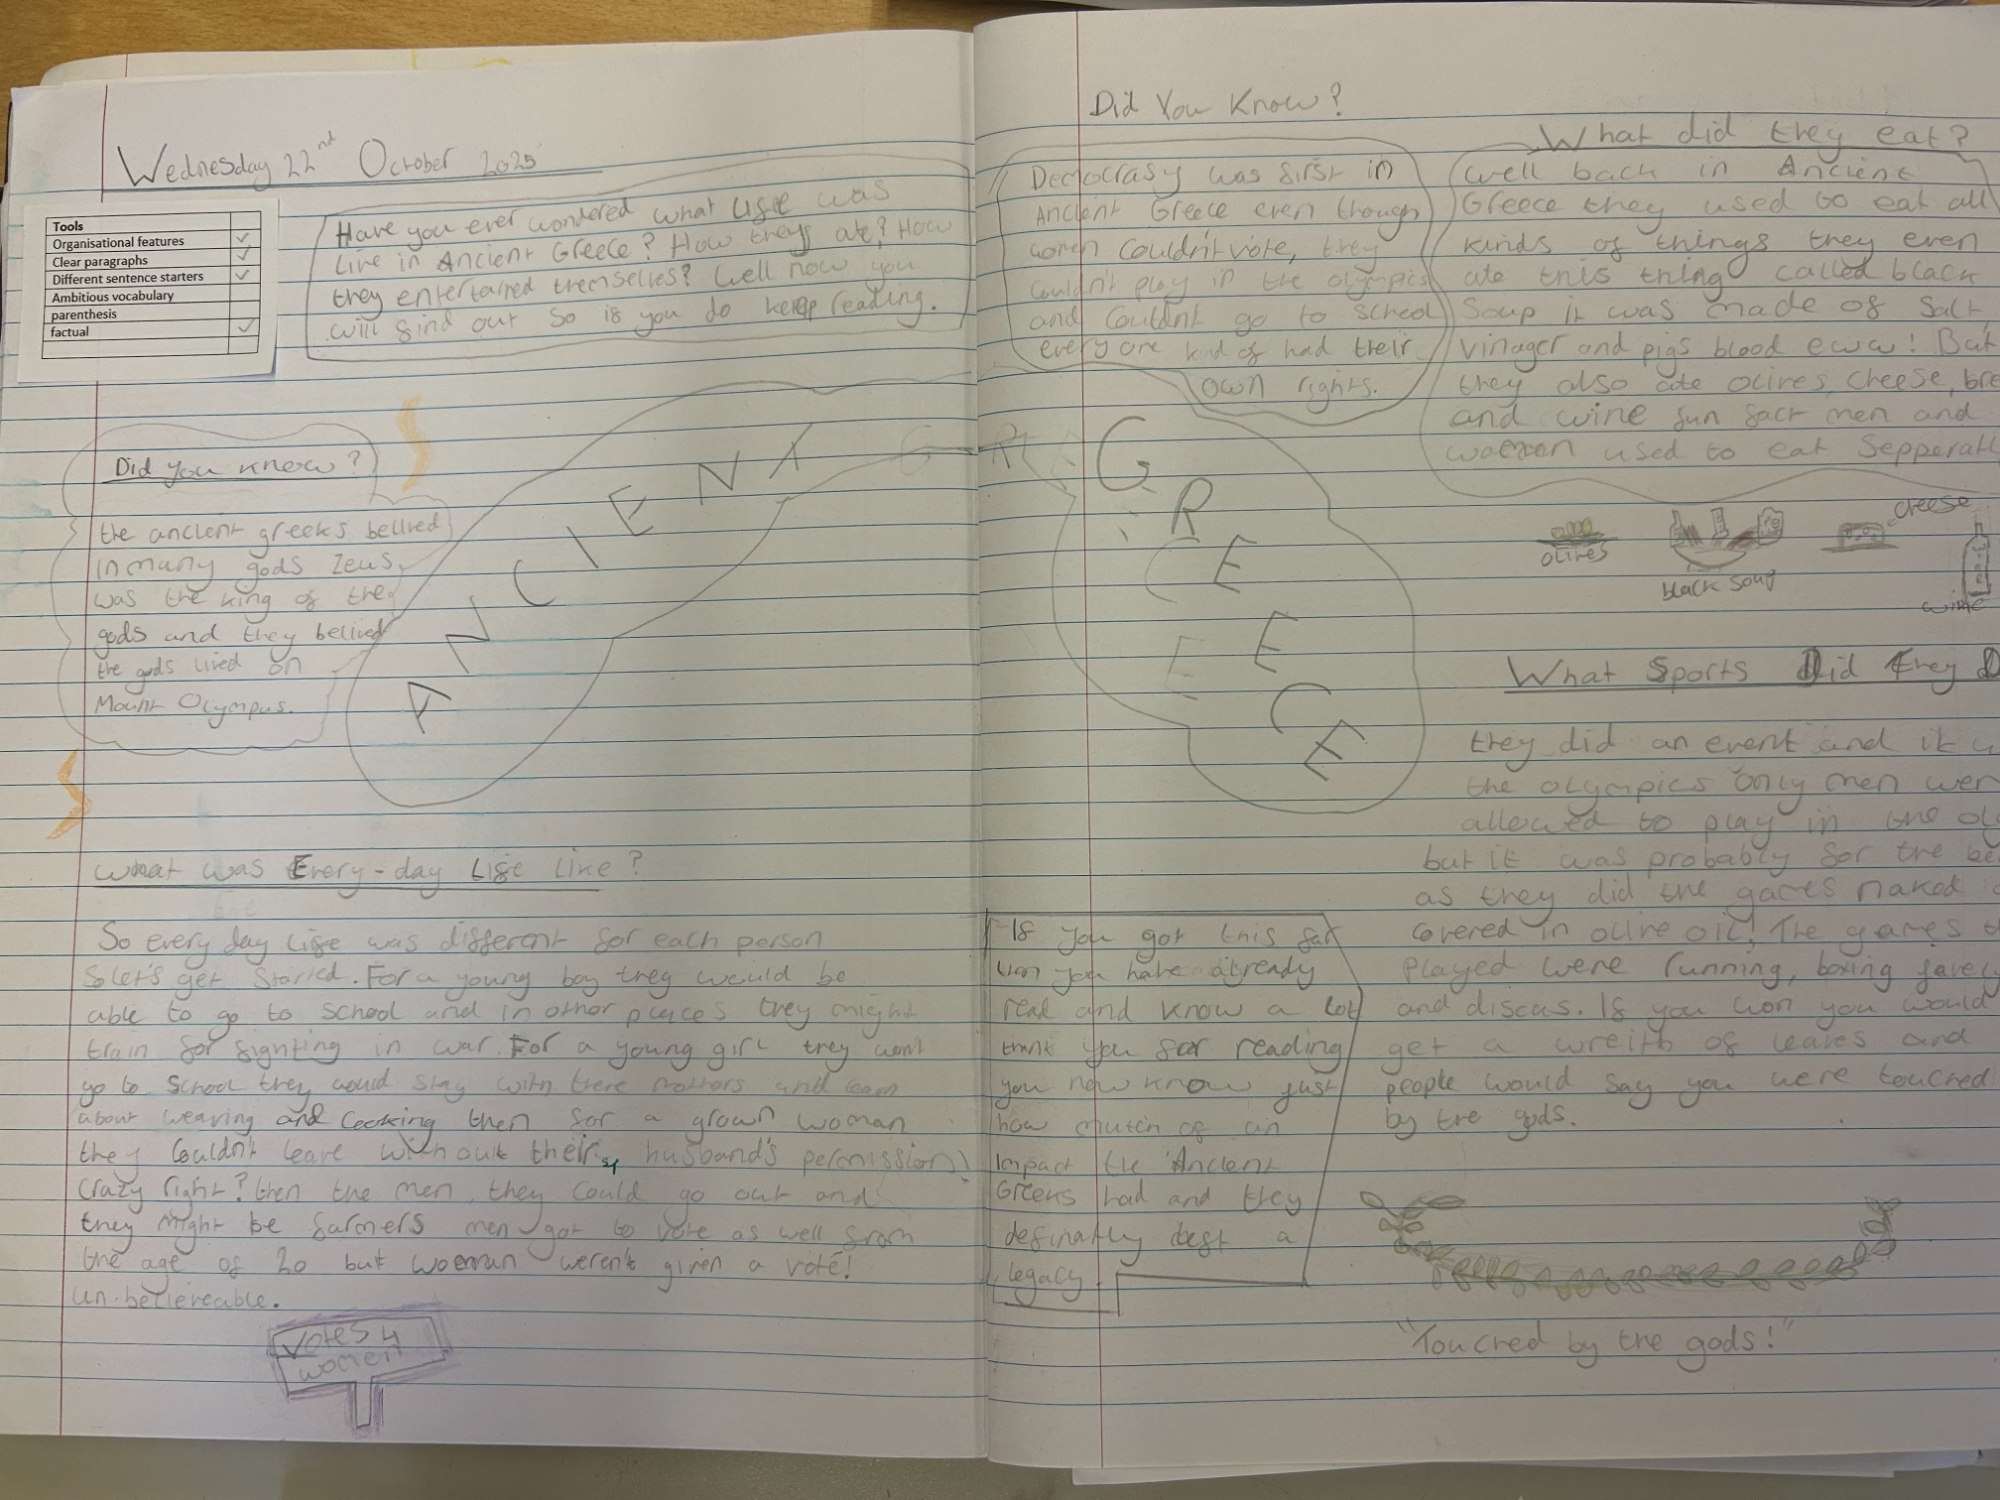 Wednesday 22nd October 2025
Tools
Organisational features ✓
Clear paragraphs ✓
Different sentence starters ✓
Ambitious vocabulary
parenthesis
factual ✓
Have you ever wondered what life was
like in Ancient Greece? How they ate? How
they entertained themselves? Well now you
will find out so if you do keep reading.
Did you know?
the ancient greeks belived
in many gods Zeus,
was the king of the
gods and they belived
the gods lived on
Mount Olympus.
ANCIENT
GREECE
What was Every-day Life Like?
So every day life was different for each person
so let's get started. For a young boy they would be
able to go to school and in other places they might
train for fighting in war. For a young girl they won't
go to school they would stay with there mothers and learn
about weaving and cooking then for a grown woman
they couldn't leave without their husband's permission!
Crazy right? then the men, they could go out and
they might be farmers men got to vote as well from
the age of 20 but woeman weren't given a vote!
un-believeable.
Votes 4
women
Did You Know?
Democrasy was first in
Ancient Greece even though
women couldn't vote, they
couldn't play in the olympics
and couldnt go to school
every one kind of had their
own rights.
If you got this far
you have already
read and know a lot
thank you for reading
you now know just
how mutch of an
impact the Ancient
Greeks had and they
definatly left a
legacy.
What did they eat?
well back in Ancient
Greece they used to eat all
kinds of things they even
ate this thing called black
Soup it was made of Salt,
vinager and pigs blood eww! But
they also ate olives, cheese,
and wine fun fact men and
woemen used to eat
olives
black soup
cheese
wine
What Sports Did they
they did an event and it
the olympics only men
allowed to play in the
but it was probably for the
as they did the games naked
covered in olive oil! The games
played were running, boxing
and discus. If you won you would
get a wreith of leaves and
people would say you were touched
by the gods.
"Touched by the gods!"